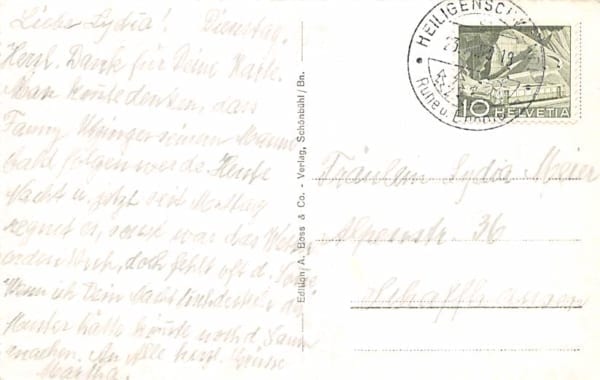 Liebe Lydia! Dienstag.
Herzl. Dank für Deine Karte.
Man könnte denken, dass
Fanny seinem Manne
bald folgen werde Heute
Nacht u. jetzt seit Mittag
regnet es, sonst war das Wetter
doch fehlt oft d. Sonne
Wenn ich Dein
Muster hätte könnte noch d. Saum
machen. An Alle herzl. Grüsse
Martha.
Edition A. Boss & Co. - Verlag, Schönbühl/Bn.
HEILIGENSCHW
Ruhe u.
10 HELVETIA
Fräulein Lydia Meier
Alpenstr. 36
Schaffhausen